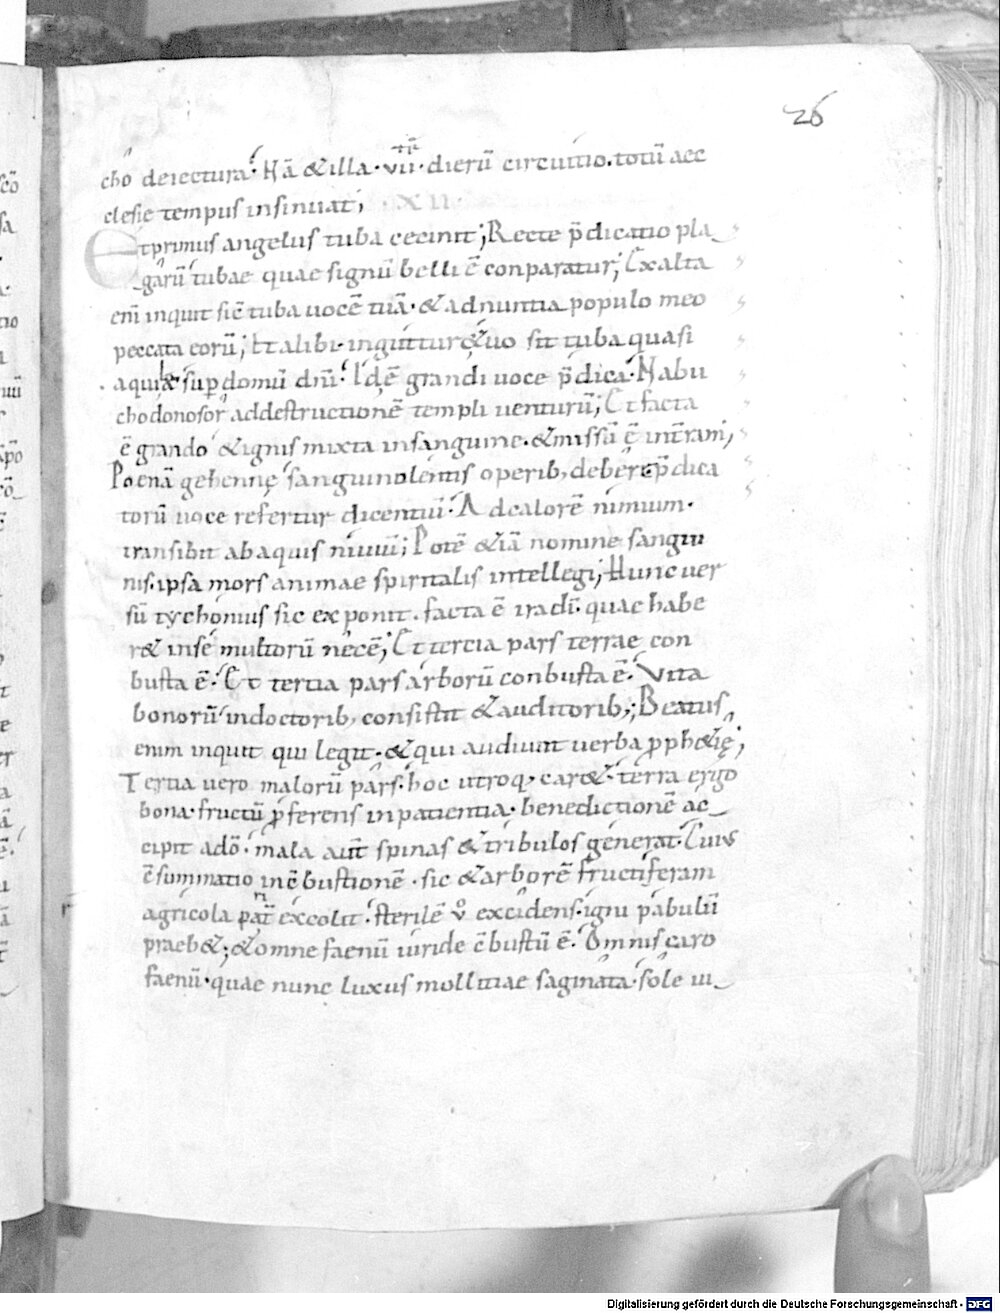 26
cho deiectura. Nā & illa .vii. dierū circuitio. totū aec
clesie tempus insinuat;
Et primus angelus tuba cecinit; Recte p̄dicatio pla
garū tubae quae signū belli ē conparatur; Exalta
eni inquit sic̄ tuba uocē tuā. & adnuntia populo meo
peccata eorū; Et alibi. in gutture tuo sit tuba quasi
aquila sup domū dn̄i. Id ē grandi uoce p̄dica. Nabu
chodonosor ad destructionē templi uenturū; Et facta
ē grando & ignis mixta in sanguine. & missū ē in terram;
Poenā gehennę sanguinolentis operib; debere p̄dica
torū uoce refertur dicentiū. A d calorē nimium.
transibit ab aquis niuiū; Potē & iā nomine sangui
nis. ipsa mors animae spiritalis intellegi; Hunc uer
sū tychonius sic exponit. facta ē ira dī. quae habe
r& in se multorū necē; Et tercia pars terrae con
busta ē. Et tertia pars arborū conbusta ē. Vita
bonorū in doctorib; consistit & auditorib;; Beatus
enim inquit qui legit. & qui audiunt uerba pph&ię;
Tertia uero malorū pars. hoc utroq; car&. terra ergo
bona. fructū p̄ferens in patientia. benedictionē ac
cipit a dō. mala aut̄ spinas & tribulos generat. Cuius
ē summatio in c̄bustionē. sic & arborē fructiferam
agricola pat̄ excolit. sterilē v̊ excidens. igni pabulū
praeb&; & omne faenū uiride c̄bustū ē. Omnis caro
faenū. quae nunc luxus mollitiae saginata. sole iu
Digitalisierung gefördert durch die Deutsche Forschungsgemeinschaft - DFG